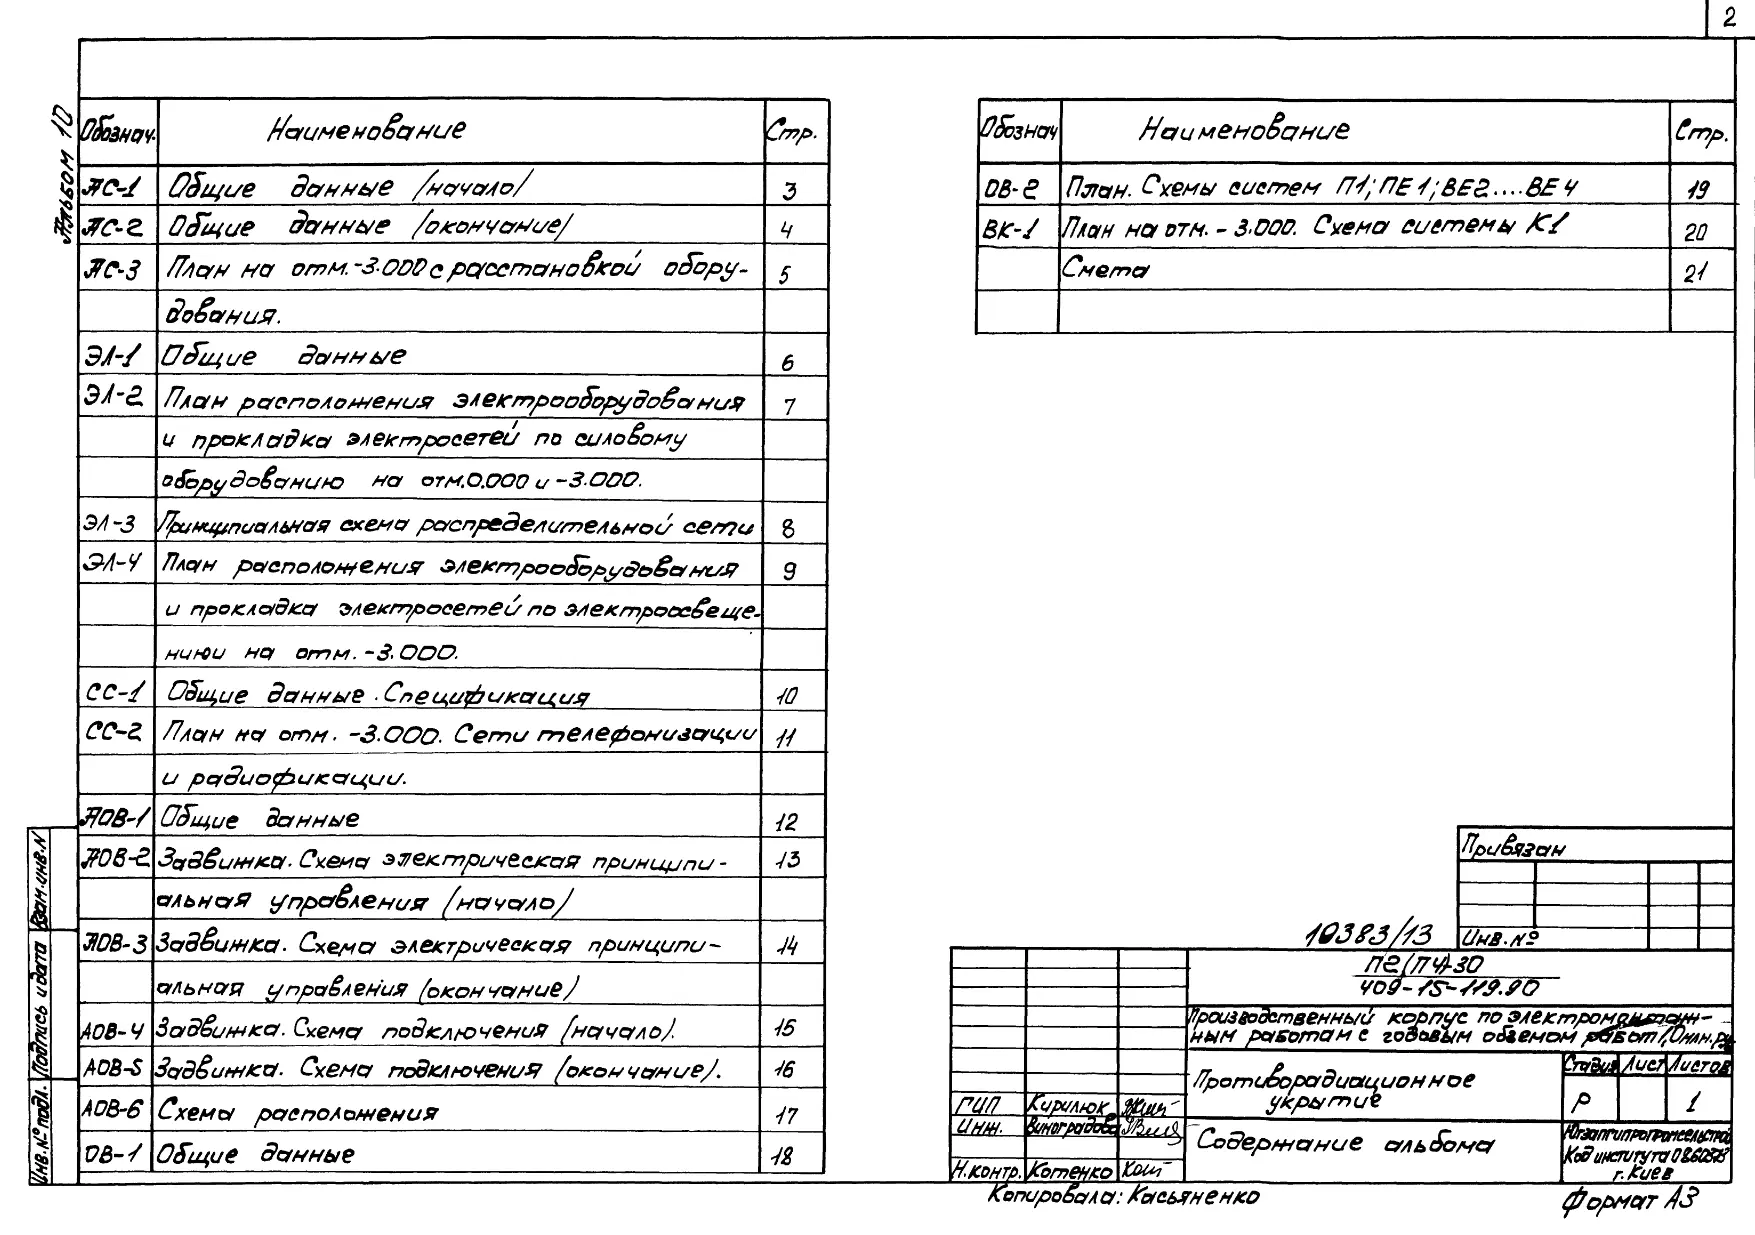 2
Альбом 10
Обознач. Наименование Стр.
АС-1 Общие данные /начало/ 3
АС-2 Общие данные /окончание/ 4
АС-3 План на отм.-3.000 с расстановкой обору- 5
дования.
ЭЛ-1 Общие данные 6
ЭЛ-2 План расположения электрооборудования 7
и прокладка электросетей по силовому
оборудованию на отм.0.000 и -3.000.
ЭЛ-3 Принципиальная схема распределительной сети 8
ЭЛ-4 План расположения электрооборудования 9
и прокладка электросетей по электроосвеще-
нию на отм. -3.000.
СС-1 Общие данные. Спецификация 10
СС-2 План на отм. -3.000. Сети телефонизации 11
и радиофикации.
АОВ-1 Общие данные 12
АОВ-2 Задвижка. Схема электрическая принципи- 13
альная управления (начало)
АОВ-3 Задвижка. Схема электрическая принципи- 14
альная управления (окончание)
АОВ-4 Задвижка. Схема подключения (начало). 15
АОВ-5 Задвижка. Схема подключения (окончание). 16
АОВ-6 Схема расположения 17
ОВ-1 Общие данные 18
Обознач Наименование Стр.
ОВ-2 План. Схемы систем П1; ПЕ1; ВЕ2....ВЕ4 19
ВК-1 План на отм. - 3.000. Схема системы К1 20
Смета 21
Взам.инв.N
Подпись и дата
Инв.№подл.
Привязан
Инв.№
10383/13
П2(П4)-30
409-15-119.90
Производственный корпус по электромонтаж-
ным работам с годовым объемом работ 1,0млн.р
Противорадиационное
укрытие
Стадия Лист Листов
Р 1
ГИП Кирилюк
Инж. Виноградова
Н.контр. Котенко
Содержание альбома
Югзапгипрогрансельстрой
Код института 0860573
г.Киев
Копировала: Касьяненко
Формат А3